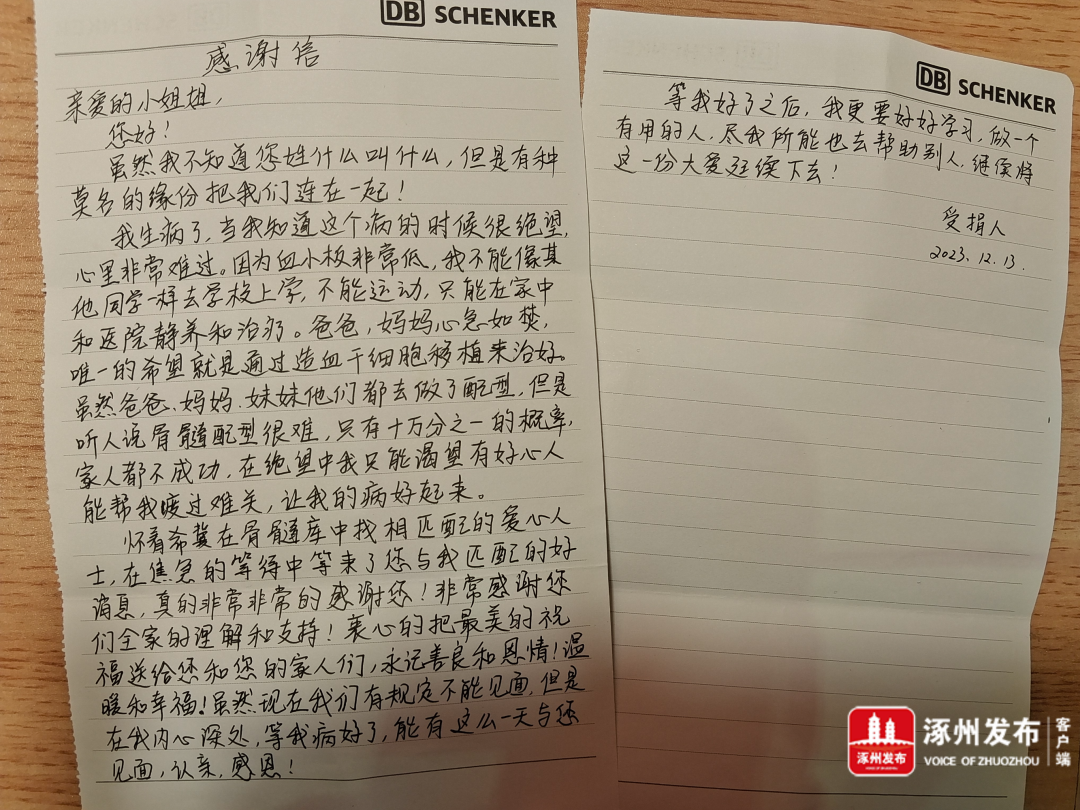 DB SCHENKER
感谢信
亲爱的小姐姐，
您好！
虽然我不知道您姓什么叫什么，但是有种
莫名的缘份把我们连在一起！
我生病了，当我知道这个病的时候很绝望，
心里非常难过。因为血小板非常低，我不能像其
他同学一样去学校上学，不能运动，只能在家中
和医院静养和治疗。爸爸，妈妈心急如焚，
唯一的希望就是通过造血干细胞移植来治好。
虽然爸爸、妈妈、妹妹他们都去做了配型，但是
听人说骨髓配型很难，只有十万分之一的概率，
家人都不成功，在绝望中我只能渴望有好心人
能帮我度过难关，让我的病好起来。
怀着希冀在骨髓库中找相匹配的爱心人
士，在焦急的等待中等来了您与我匹配的好
消息，真的非常非常的感谢您！非常感谢您
们全家的理解和支持！衷心的把最美的祝
福送给您和您的家人们，永记善良和恩情！温
暖和幸福！虽然现在我们有规定不能见面，但是
在我内心深处，等我病好了，能有这么一天与您
见面，认亲，感恩！
DB SCHENKER
等我好了之后，我更要好好学习，做一个
有用的人，尽我所能也去帮助别人，继续将
这一份大爱延续下去！
受捐人
2023.12.13.
涿州发布
涿州发布
VOICE OF ZHUOZHOU
客户端